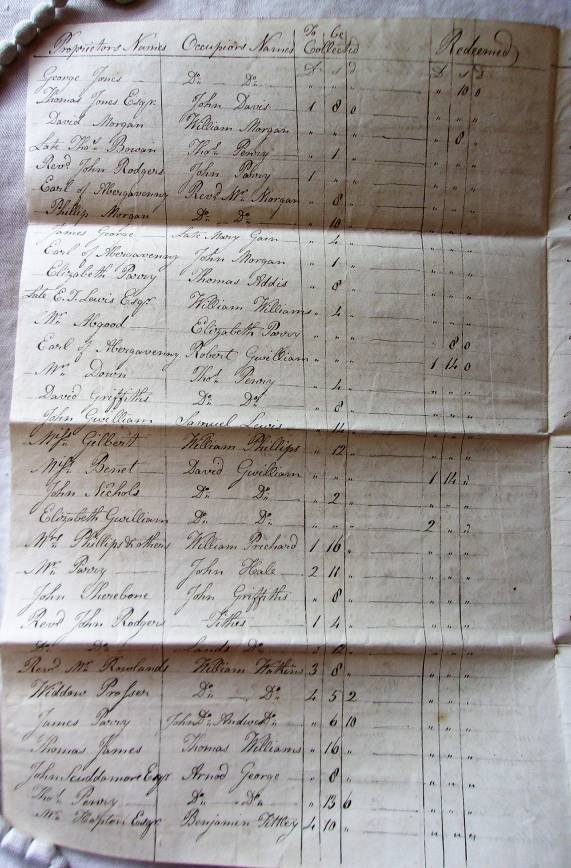 Proprietors Names Occupiers Names To be Collected Redeemed
£ s d £ s d
George Jones Do Do " " " " 10 0
Thomas Jones Esqr John Davis 1 8 0 " " "
David Morgan William Morgan " " " " 8 "
Late Thos Bowan Thos Perry " 1 " " " "
Revd John Rodgers John Parry 1 " " " " "
Earl of Abergavenny Revd Mr Morgan " 8 " " " "
Phillip Morgan Do Do " 10 " " " "
James George Late Mary Gam " 4 " " " "
Earl of Abergavenny John Morgan " 1 " " " "
Elizabeth Parry Thomas Addis " 8 " " " "
Late E. T. Lewis Esqr William Williams " 4 " " " "
Mr Abgood Elizabeth Parry " " " " 8 0
Earl of Abergavenny Robert Gwilliam " " " 1 14 0
Mrs Down Thos Perry " 4 " " " "
David Griffiths Do Do " 8 " " " "
John Gwilliam Samuel Lewis " " " "
Miss Gilbert William Phillips " 12 " " " "
Miss Benet David Gwilliam " " " 1 14 "
John Nichols Do Do " 2 " " " "
Elizabeth Gwilliam Do Do " " " 2 " "
Mrs Phillips & others William Prichard 1 16 " " " "
Mr Parry John Hale 2 11 " " " "
John John Griffiths " 8 " " " "
Revd John Rodgers Tithes 1 4 " " " "
Do Do Lands Do " 12 " " " "
Revd Mr Rowlands William Watkins 3 8 " " " "
Widdow Prosser Do Do 4 5 2 " " "
James Parry John Do Do " 6 10 " " "
Thomas James Thomas Williams " 16 " " " "
John Scuddamore Esqr Arnod George " 8 " " " "
Thos Perry Do Do " 13 6 " " "
Mr Hopton Esqr Benjamin Tittley 4 10 " " " "